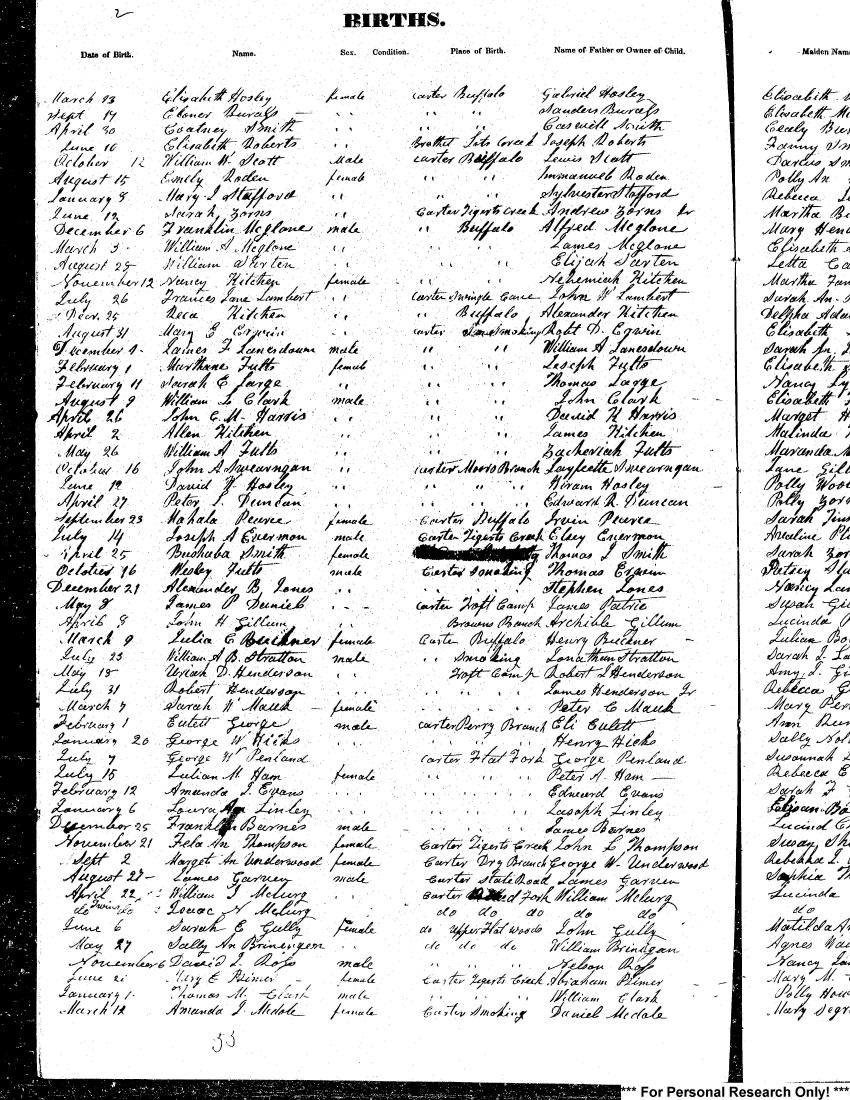 2
BIRTHS.
Date of Birth. Name. Sex. Condition. Place of Birth. Name of Father or Owner of Child. Maiden Nam
March 23 Elisabeth Hosley female carter Buffalo Gabriel Hosley Elisabeth
Sept 17 Ebner Burchfs " " " Sanders Burchfs Elisabeth
April 30 Coatney Smith " " " Caswell Smith Cealy Bur
June 10 Elisabeth Roberts " " Joseph Roberts Fanny Sm
October 12 William W. Scott Male carter Buffalo Lewis Scott Darcus Sm
August 15 Emily Roden female " " Immanuel Roden Polly An
January 8 Mary J Stafford " " " " Sylvester Stafford Rebecca
June 12 Sarah Zorns " " Carter Tigerts Creek Andrew Zorns Martha B
December 6 Franklin Mcglone male " Buffalo Alfred Mcglone Mary Hen
March 3 William A. Mcglone " " " " James Mcglone Elisabeth
August 25 William " " " " Elijah Sarten Letta Ca
November 12 Nancy Kitchen female " " Nehemiah Kitchen Martha Fan
July 26 Frances Jane Lambert " " carter Swingle Cane John W Lambert Sarah An
Decr. 25 Reca Kitchen " " " Buffalo Alexander Kitchen Delpha Ada
August 31 Mary E Erwin " " carter Smoking Robt D. Erwin Elisabeth
December 4 James F Lanesdown male " " William A Lanesdown Sarah An.
February 1 Marthane Fults female " " Joseph Fults Elisabeth
February 11 Sarah E Large " " " " Thomas Large Nancy Ly
August 9 William L Clark male " " John Clark Elisabeth
April 26 John C. M. Harris " " " " David H Harris Marget H
April 2 Allen Kitchen " " " " James Kitchen Malinda
May 26 William A Fults " " " " Zacheriah Fults Maranda M
October 16 John A Swearngan " " carter Moors Branch Layfeette Swearngan Jane Gill
June 12 David W Hosley " " " " Hiram Hosley Polly Woo
April 27 Peter L. Duncan " " " " Edward R. Duncan Polly Zor
September 23 Mahala Pearce female Carter Buffalo Irvin Pearce Sarah
July 14 Joseph A Everman male Carter Tigerts Creek Elsey Everman
April 25 Smith female Thomas J Smith Sarah Zor
October 16 Wesley Fults male Carter Smoking Thomas Erwin Betsey
December 21 Alexander B Jones " " " " Stephen Jones Nancy Lan
May 8 James P Daniels carter Troft Camp James Patric Susan Gi
April 8 John H Gillum Browns Branch Archible Gillum Lucinda P
March 9 Julia E Buckner female Carter Buffalo Henry Buckner Julian Bo
July 23 William A B. Stratton male " " Smoking Jonathan Stratton Sarah J. La
May 18 Uriah D. Henderson " " Troft Camp Robert Henderson Amy J. G
July 31 Robert Henderson " " James Henderson Jr Rebecca G
March 7 Sarah W Mauk female " " Peter C Mauk Mary Per
February 1 Eulett George male carter Perry Branch Eli Eulett Ann Bur
January 20 George W Hicks " " " " Henry Hicks Sally Nol
July 7 George W Penland carter Flat Fork George Penland Susannah
July 15 Julian M Ham female " " Peter A. Ham Rebecca E
February 12 Amanda J. Evans " " " " Edward Evans Sarah F
January 6 Laura An Linley " " " " Joseph Linley
December 25 Franklin Barnes male " " James Barnes Lucind C
November 21 An Thompson female Carter Tigerts Creek John L Thompson Susay Sh
Sept 2 Marget An Underwood female Carter Dry Branch George W. Underwood
August 27 James Garvey male Carter State Road James Garven Sophia Th
April 22 William J Mclurg carter Fork William Mclurg Lucinda
do Twins do Isaac N Mclurg do do do do do do
June 6 Sarah E Gully Female do upper Flat woods John Gully Matilda An
May 27 Sally An Brinegan do do do William Brinegan Agnes
November 6 David J. Ross male Nelson Ross Nancy Jan
June 21 Mary E Plimer female Carter Tigerts Creek Abraham Plimer Mary M.
January 1 Thomas M. Clark male " " William Clark Polly How
March 12 Amanda J. Mcdole female Carter Smoking Daniel Mcdole Mary Segr
55
*** For Personal Research Only! ***